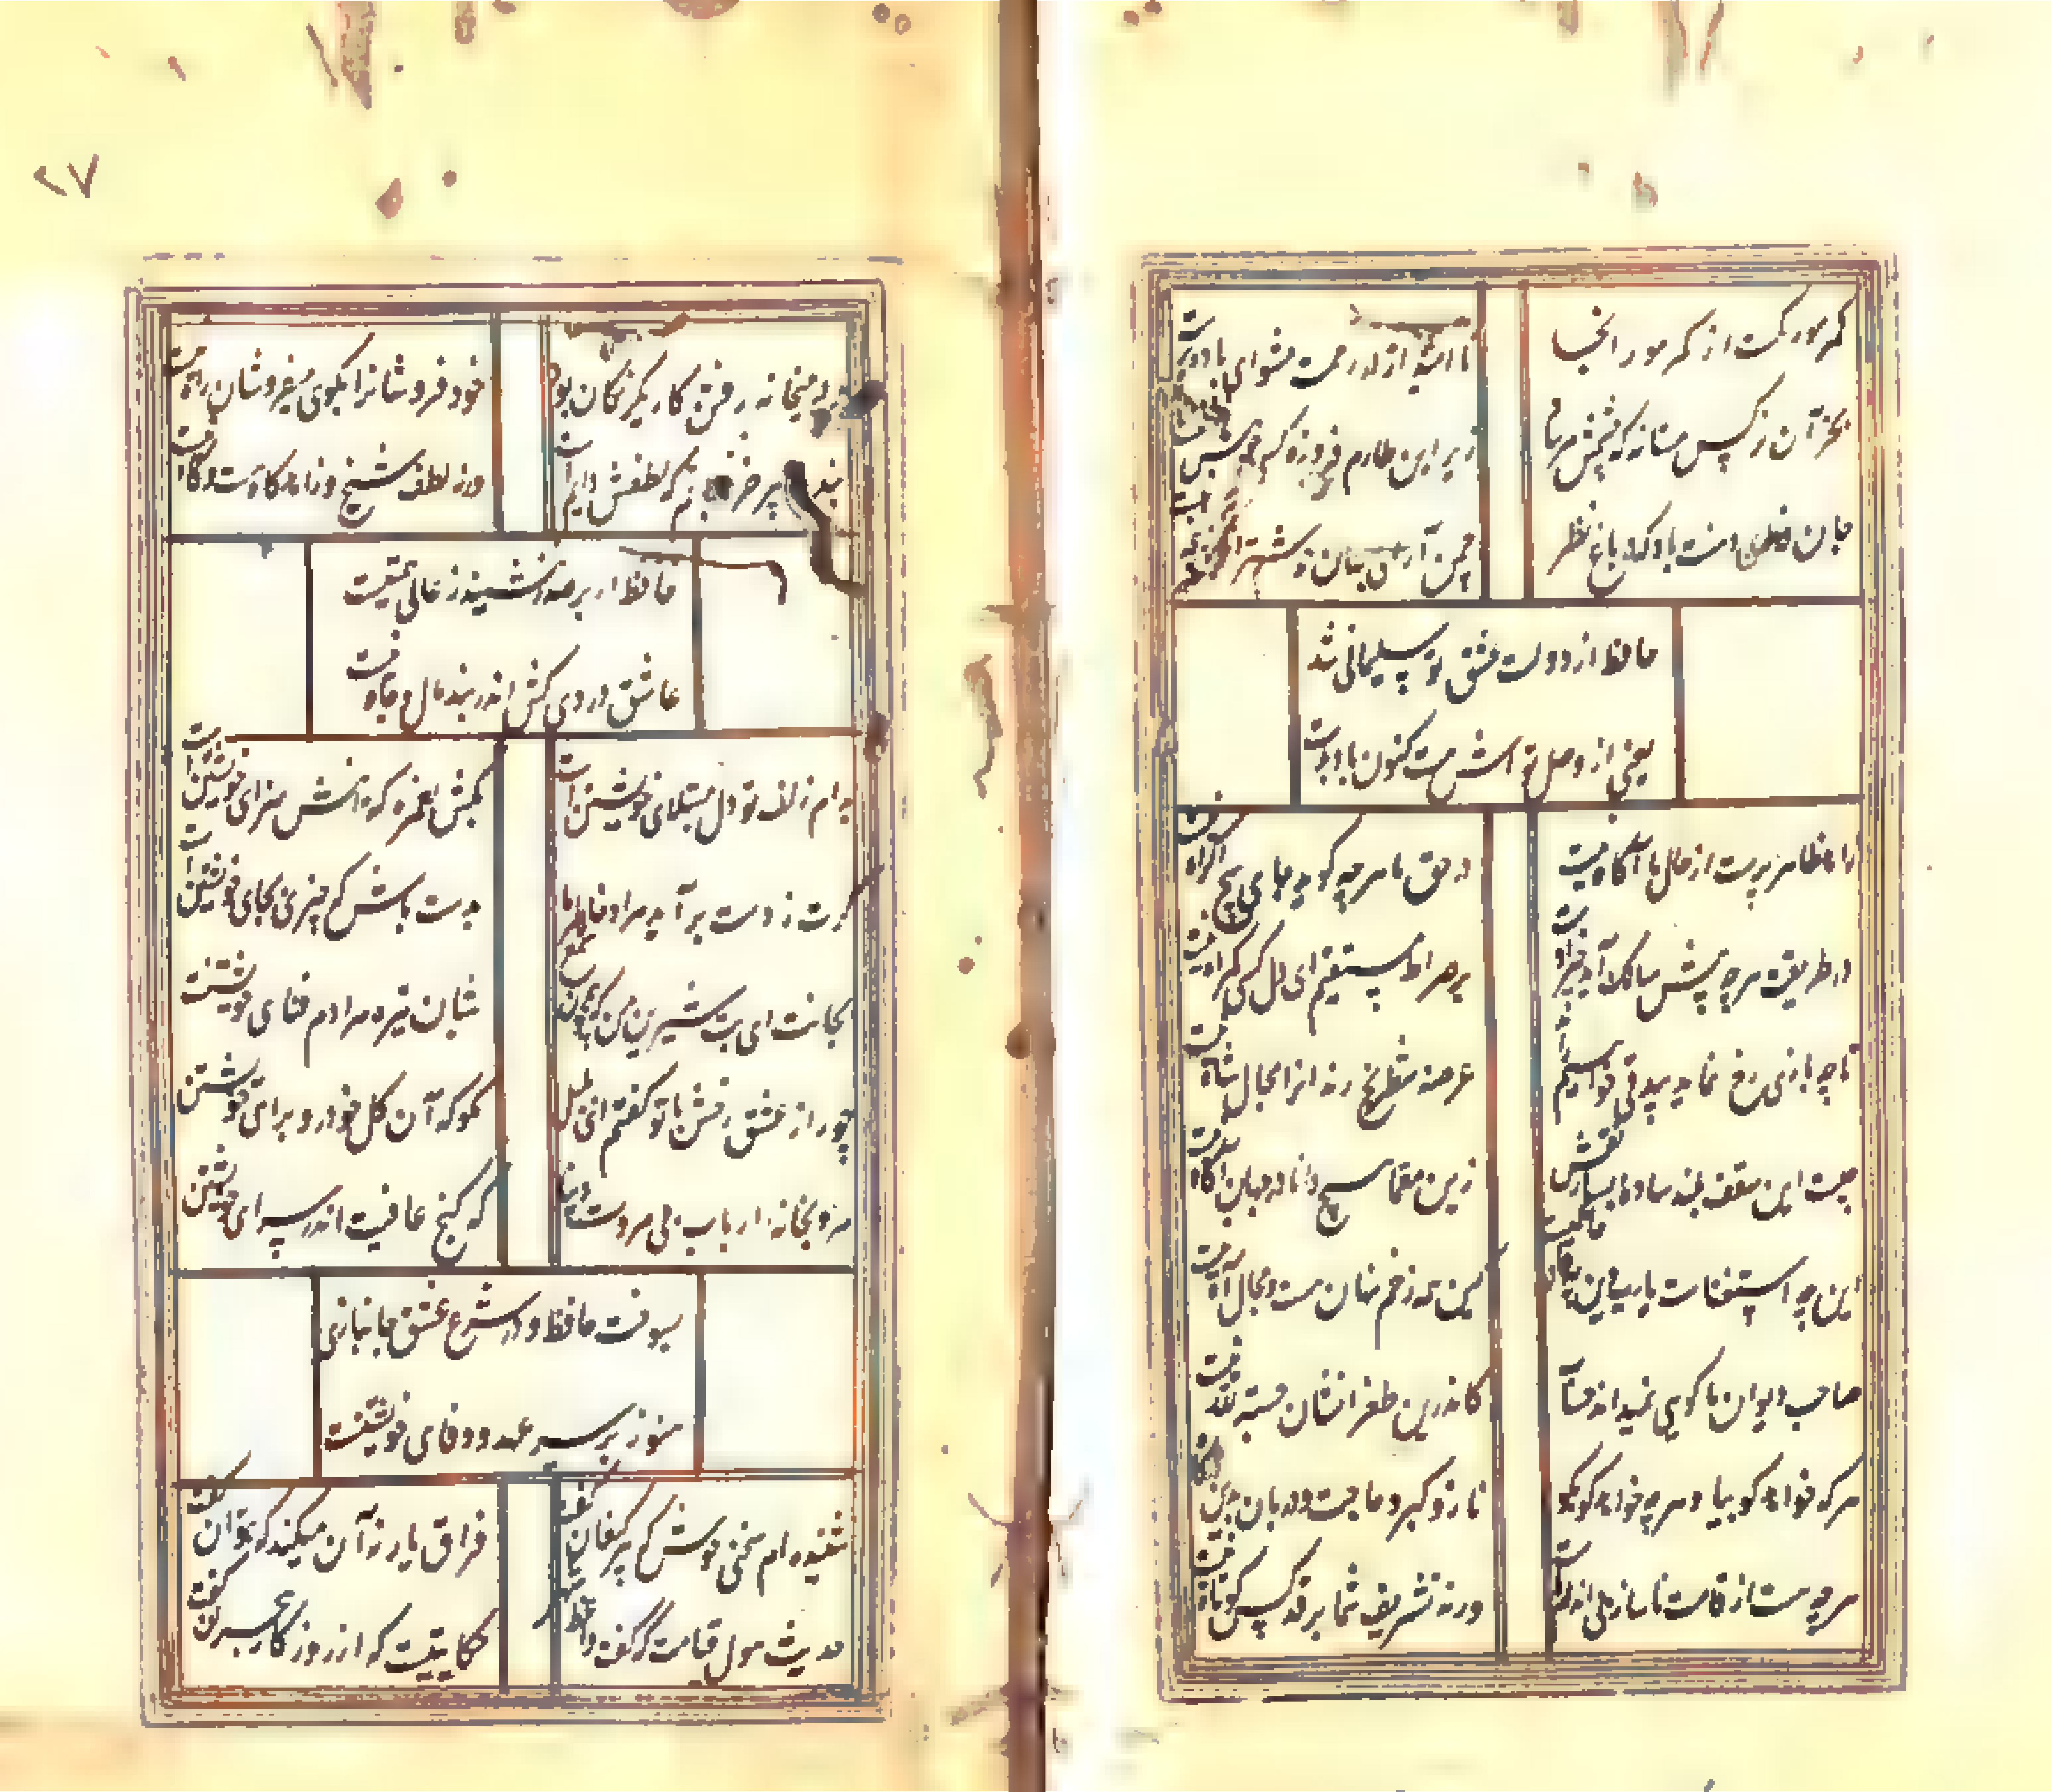 کمر مور کمست از کمر مور اینجا
ناامید از در رحمت مشو ای باده پرست
بجز آن نرکس مستانه که چشمش مرساد
زیر این طارم فیروزه کسی خوش ننشست
جان فدای دهنت باد که در باغ نظر
چمن آرای جهان خوشتر ازین غنچه نبست
حافظ از دولت عشق تو سلیمانی شد
یعنی از وصل تواش نیست کنون باد بدست
زاهد ظاهر پرست از حال ما آگاه نیست
در حق ما هر چه کوید جای هیچ اکراه نیست
در طریقت هر چه پیش سالک آید خیر اوست
بر صراط مستقیم ای دل کسی کمراه نیست
تا چه بازی رخ نماید بیدقی خواهیم راند
عرصه شطرنج رندانرا مجال شاه نیست
چیست این سقف بلند ساده بسیار نقش
زین معما هیچ دانا در جهان آکاه نیست
این چه استغناست یارب وین چه قادر حاکمیست
کین همه زخم نهان هست و مجال آه نیست
صاحب دیوان ما کویی نمیداند حساب
کاندرین طغرا نشان حسبة لله نیست
هر که خواهد کو بیا و هر چه خواهد کو بکو
ناز و کبر و حاجب و دربان درین
هر چه هست از قامت ناساز بی اندام ماست
ورنه تشریف شما بر قد کس کوتاه نیست
۲۷
بر در میخانه رفتن کار یکرنکان بود
خود فروشانرا بکوی میفروشان راه نیست
بنده پیر خراباتم که لطفش دایم است
ورنه لطف شیخ و زاهد کاه هست و کاه نیست
حافظ ار بر صدر ننشیند ز عالی همتیست
عاشق دردی کش اندر بند مال و جاه نیست
بدام زلف تو دل مبتلای خویشتن است
بکش بغمزه که اینش سزای خویشتن است
کرت ز دست بر آید مراد خاطر ما
بدست باش که چیزی بجای خویشتن است
بجانت ای بت شیرین من که همچون شمع
شبان تیره مرادم فنای خویشتنست
چو رای عشق زدی با تو کفتم ای بلبل
مکو که آن کل خودرو برای خویشتن
مرو بخانه ارباب بی مروت دنیا
که کنج عافیت اندر سرای خویشتن
بسوخت حافظ و در شرع عشق جانبازی
هنوز بر سر عهد و وفای خویشتنست
شنیده ام سخنی خوش که پیر کنعان کفت
فراق یار نه آن میکند که بتوان کفت
حدیث هول قیامت که کفت واعظ شهر
حکایتیست که از روزکار هجران کفت